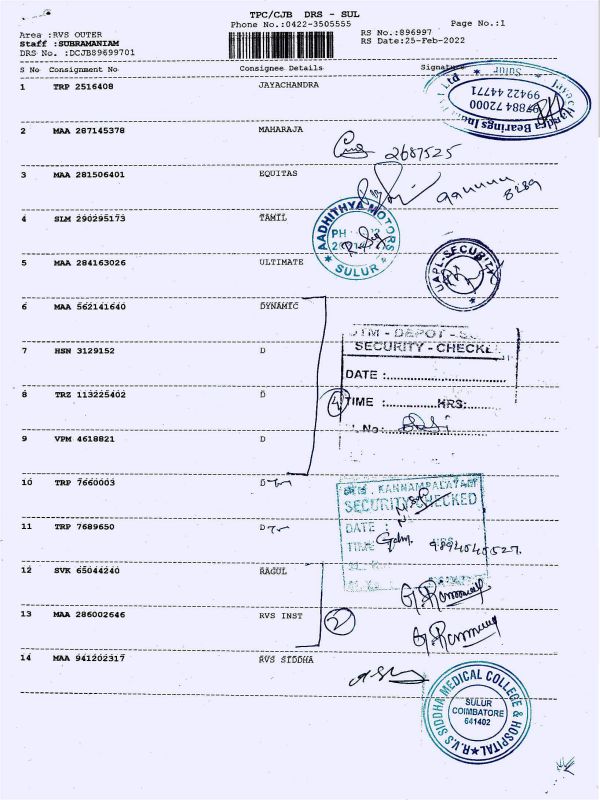 TPC/CJB DRS - SUL
Phone No.:0422-3505555 Page No.:1
Area :RVS OUTER RS No.:896997
Staff :SUBRAMANIAM RS Date:25-Feb-2022
DRS No. :DCJB89699701
S No Consignment No Consignee Details Signature
1 TRP 2516408 JAYACHANDRA
Sulur
99422 44771
97884 72000
Bearings
2 MAA 287145378 MAHARAJA
2687525
3 MAA 281506401 EQUITAS
8289
4 SLM 290295173 TAMIL
AADHITHYA MOTORS
PH
SULUR
5 MAA 284163026 ULTIMATE
UAPL-SECURITY
6 MAA 562141640 DYNAMIC
DEPOT
7 HSN 3129152 D
SECURITY - CHECKE
DATE :
8 TRZ 113225402 D
4 TIME : HRS:
No:
9 VPM 4618821 D
10 TRP 7660003 D
KANNAMPALAYAM
SECURITY CHECKED
11 TRP 7689650 D
DATE :
TIME
9894540527
12 SVK 65044240 RAGUL
13 MAA 286002646 RVS INST
2
14 MAA 941202317 RVS SIDDHA
R.V.S SIDDHA MEDICAL COLLEGE & HOSPITAL
SULUR
COIMBATORE
641402